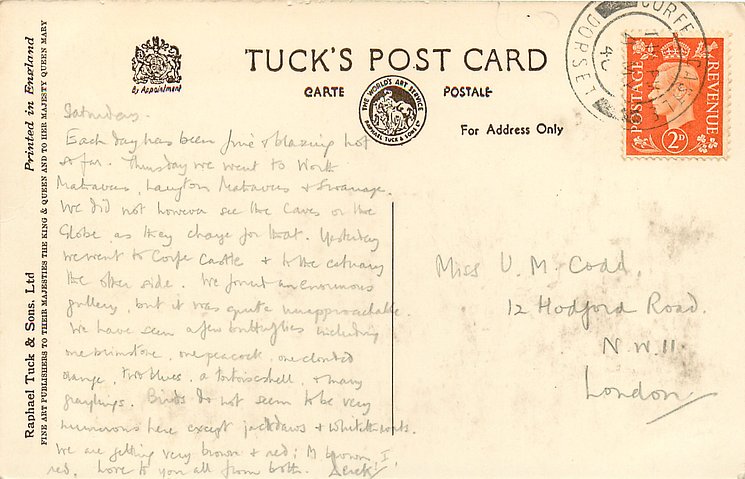 TUCK'S POST CARD
By Appointment
CARTE POSTALE
THE WORLD'S ART SERVICE
RAPHAEL TUCK & SONS LTD
For Address Only
CORFE CASTLE
DORSET
POSTAGE REVENUE
2D
Printed in England
Raphael Tuck & Sons, Ltd
FINE ART PUBLISHERS TO THEIR MAJESTIES THE KING & QUEEN AND TO HER MAJESTY QUEEN MARY
Saturday.
Each day has been fine & blazing hot
so far. Thursday we went to Worth
Matravers, Langton Matravers & Swanage.
We did not however see the Caves or the
Globe as they charge for that. Yesterday
we went to Corfe Castle & to the estuary
the other side. We found an enormous
gullery, but it was quite unapproachable.
We have seen a few butterflies including
one brimstone, one peacock, one clouded
orange, two blues, a tortoiseshell, & many
graylings. Birds do not seem to be very
numerous here except jackdaws & whitethroats.
We are getting very brown & red; M brown, I
red. Love to you all from both. Derek
Miss U. M. Codd,
12 Hodford Road.
N.W.11.
London